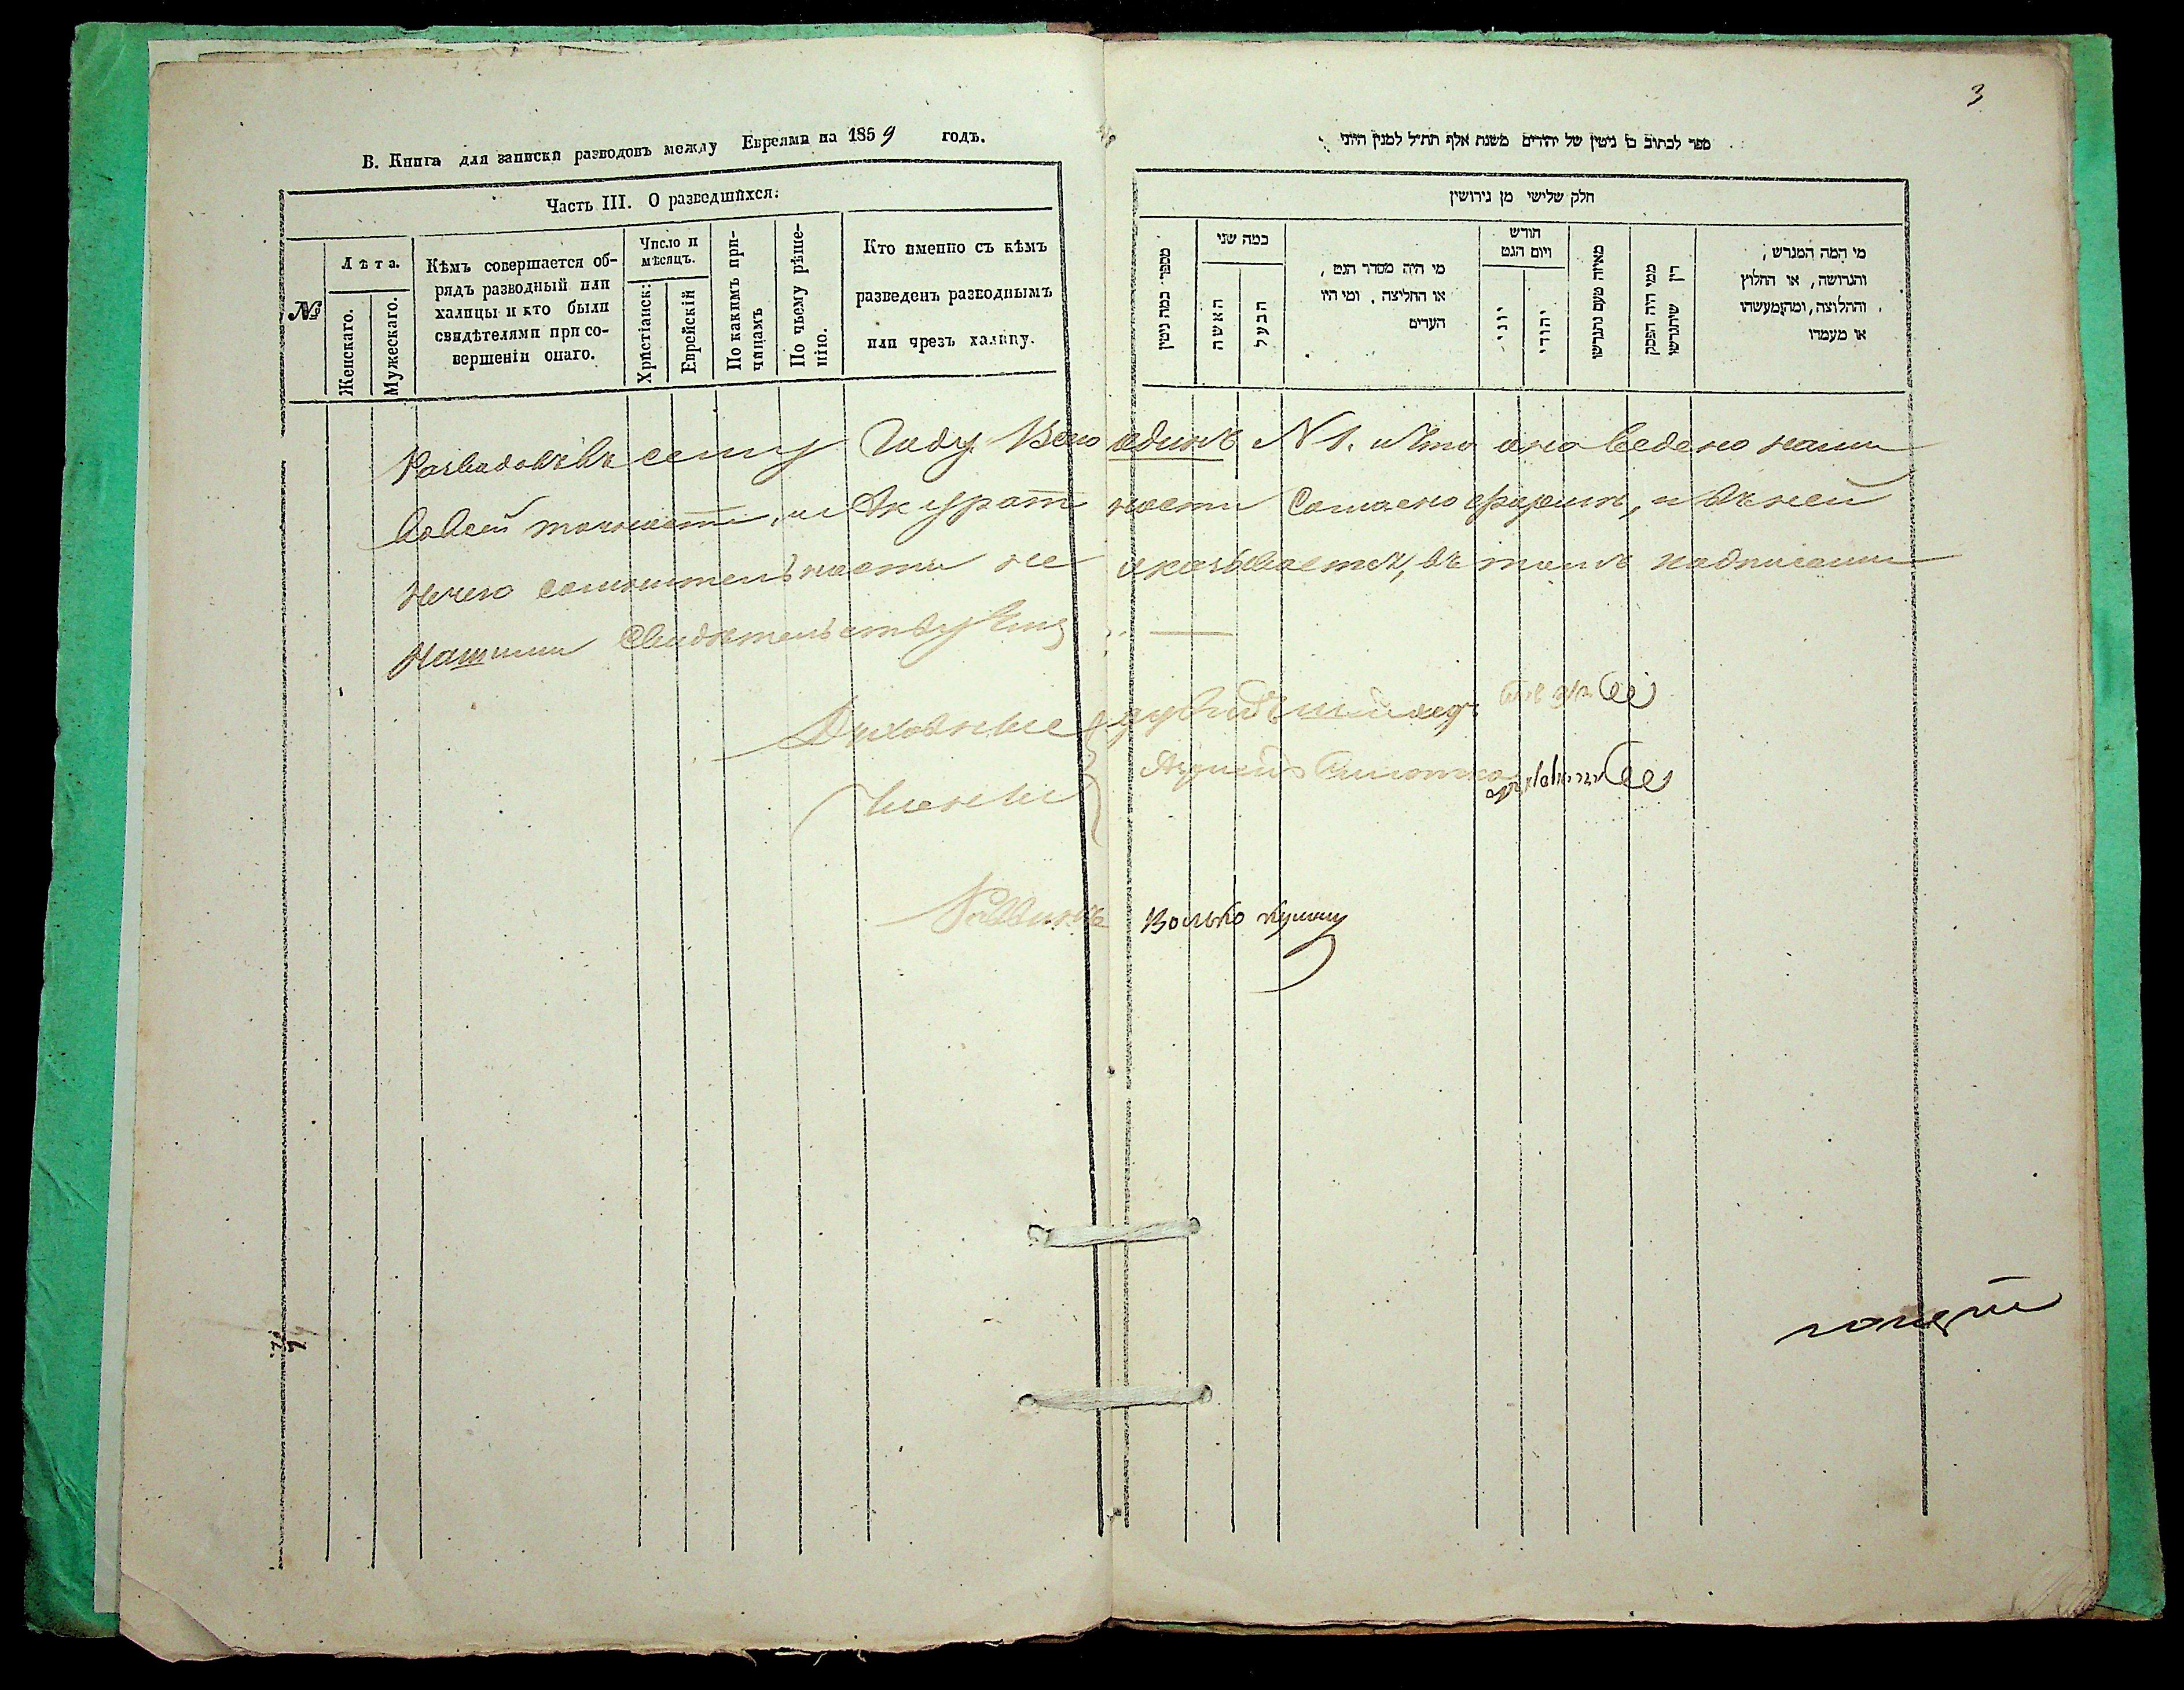 3
В. Книга для записки разводовъ между Евреями на 1859 годъ.
Часть III. О разведшихся:
№
Лѣта.
Женскаго.
Мужескаго.
Кѣмъ совершается об-
рядъ разводный или
халицы и кто были
свидѣтелями при со-
вершеніи онаго.
Число и
мѣсяцъ.
Христіанск:
Еврейскій
По какимъ при-
чинамъ
По чьему рѣше-
нію.
Кто именно съ кѣмъ
разведенъ разводнымъ
или чрезъ халицу.
ספר לכתוב בו גיטין של יהודים משנת אלף תת״ל למנין היוני
חלק שלישי מן גירושין
מספר כמה גיטין
כמה שני
האשה
הבעל
מי היה מסדר הגט,
או החליצה. ומי היו
העדים
חודש
ויום הגט
יוני
יהודי
מאיזה טעם נתגרשו
מפי היה הפסק
דין שיתגרשו
מי המה המגרש,
והגרושה, או החלוץ
והחלוצה, ומה מעשהו
או מעמדו
Разводовъ въ семъ Году Всего одинъ N 1. и что оно ведено нами
во всей точности, и Акурат ности Согласно формъ, и въ ней
нечего сомнительности не оказывается, въ томъ подписами
Нашими Свидѣтельствуемъ
Духовные
Члены
Раввинъ Волько